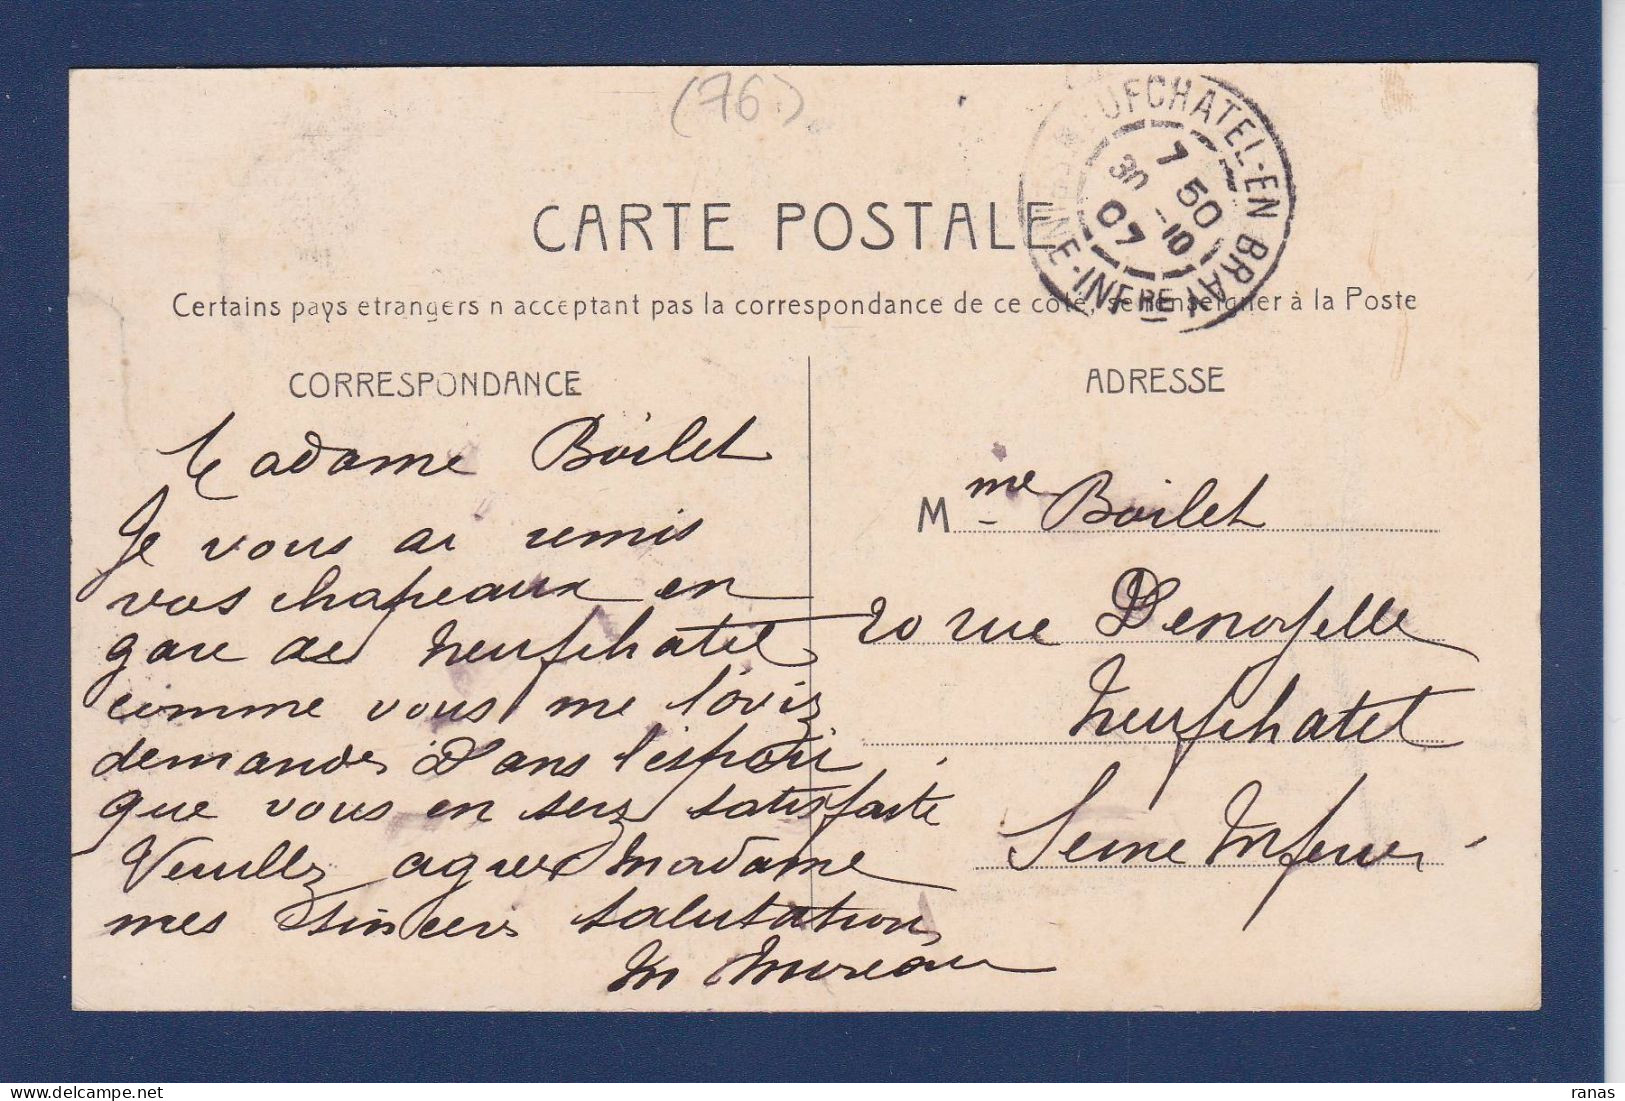 (76)
NEUFCHATEL-EN BRAY
7 50
30 -10
07
SEINE-INFRE
CARTE POSTALE
Certains pays etrangers n acceptant pas la correspondance de ce côté, se renseigner à la Poste
CORRESPONDANCE
Madame Boilet
Je vous ai remis
vos chapeaux en
gare de Neufchatel
comme vous me l'aviz
demander Dans l'espoir
que vous en serz satisfaite
Veuillz agreer Madame
mes sincers salutations
M Mureau
ADRESSE
Mme Boilet
20 rue Denoyelle
Neufchatel
Seine Inferi
ranas